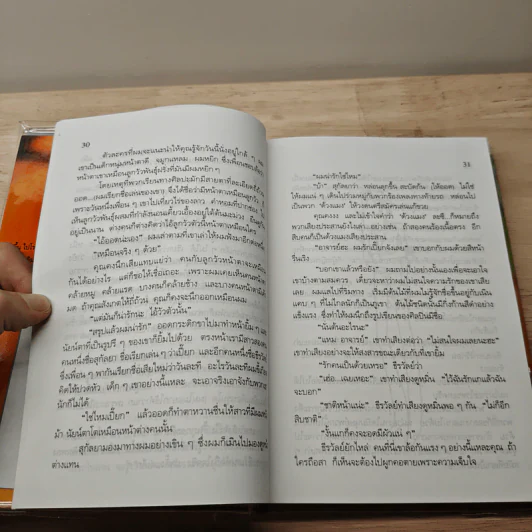 30
ตัวละครที่ผมจะแนะนำให้คุณรู้จักวันนี้นั่งอยู่ใกล้ ๆ
เขาเป็นเด็กหนุ่มหน้าตาดี จมูกแหลม ผมหยิก ซึ่งเพื่อน
หน้าตาเขาเหมือนลูกวัวพันธุ์ฝรั่งที่มันมีผมหยิก ๆ
โดยเหตุที่พวกเรียนทางศิลปะมักมีสายตาที่ละเอียด
ผมเรียกชื่อเล่นของเขา จึงได้ชื่อว่ามีหน้าตาเหมือนลูก
เพราะวันหนึ่งเพื่อน ๆ เขาไปเที่ยวไร่ของสาว
เห็นลูกวัวพันธุ์ผสมกำลังนอนเคี้ยวเอื้องอยู่ใต้ต้นมะม่วง
อยู่เป็นนาน ต่างคนก็ต่างคิดว่าไอ้ลูกวัวตัวนี้หน้าตาเหมือนใคร
"ไอ้ออดน่ะเอง" ผมเล่าตามที่เขาเล่าให้ผมฟังมาอีก
"เหมือนจริง ๆ ด้วย"
คุณคงนึกเสียแทบแย่ว่า คนกับลูกวัวหน้าตาจะเหมือน
กันได้อย่างไร แต่ก็ขอให้เชื่อเถอะ เพราะผมเคยเห็นคนหน้า
คล้ายหมู คล้ายแรด บางคนก็คล้ายช้าง และบางคนหน้าตา
มด ถ้าคุณสังเกตให้ถี่ถ้วน คุณก็คงจะนึกออกเหมือนผม
"แต่มันก็น่ารักนะ ไอ้วัวตัวนั้น"
"สรุปแล้วผมน่ารัก" ออดกระดิกขาไปมาทำหน้ายิ้ม ๆ
คนหนึ่งชื่อสุกัลยา ชื่อเรียกเล่น ๆ ว่าเปี๊ยก และอีกคนหนึ่งชื่อธีรวัลย์
ซึ่งเพื่อน ๆ พากันเรียกชื่อเสียใหม่ว่าวันละที อะไรวันละที
คิดให้ปวดหัว เด็ก ๆ เขาอย่างนี้แหละ จะเอาจริงเอาจังกับพวก
นักก็ไม่ได้
"ใช่ไหมเปี๊ยก" แล้วออดก็ทำตาหวานซึ้งให้สาวที่มีผมหน้า
ม้า นัยน์ตาโตเหมือนหน้าต่างคนนั้น
สุกัลยามองมาทางผมอย่างเขิน ๆ ซึ่งผมก็เมินไปมองตู้
ต่างแทน
31
"ผมน่ารักใช่ไหม"
"บ้า" สุกัลยาว่า หล่อนลุกขึ้น สะบัดก้น
เมื่อ ๆ เดินไปรวมหมู่กับพวกร้องเพลงทางท้ายรถ หล่อนไป
เป็นพวก "ตัวแมง" ให้วงดนตรีสมัครเล่นแก้ขวย
คุณคงงง และไม่เข้าใจคำว่า "ตัวแมง" ละซี ก็หมายถึง
พวกเสียงประสานยังไงเล่า อย่างเช่น ถ้าสองคนร้องเนื้อตรง อีก
สิบคนก็เป็นตัวแมงเสียงประสาน
"อาจารย์ฮะ ผมรักเปี๊ยกจังเลย" เขาบอกกับผมด้วยสีหน้า
รื่นเริง
"บอกเขาแล้วหรือยัง" ผมถามไปอย่างนั้นเองเพื่อจะเอาใจ
เขาบ้างตามสมควร เดี๋ยวจะหาว่าผมไม่สนใจความรักของเขาเสีย
เลย ผมแลไปที่ริมทาง เริ่มมีต้นไม้ที่ผมไม่รู้จักชื่อขึ้นอยู่กับเนิน
แคบ ๆ ที่ไม่ไกลนักก็เป็นภูเขา ต้นไม้ชนิดนั้นมีกิ่งก้านสีดำอย่าง
แข็งแรง ซึ่งทำให้ผมนึกถึงรูปเขียนของศิลปินมีชื่อ
"นั่นต้นอะไรนะ"
"แหม อาจารย์" เขาทำเสียงต่อว่า "ไม่สนใจผมเลยนะฮะ"
เขาทำเสียงอย่างจะให้สงสารขณะเดียวกับที่เขายิ้ม
"รักคนเป็นด้วยเหรอ" ธีรวัลย์ว่า
"เฮ่อ...เฉยเหอะ" เขาทำเสียงดูหมิ่น "ไว้ฉันรักแกแล้วฉัน
จะบอก"
"ชาติหน้าแน่ะ" ธีรวัลย์ทำเสียงดูหมิ่นพอ ๆ กัน "ไม่ก็อีก
สิบชาติ"
"งั้นแกก็คงจะอดมีผัวแน่ ๆ"
ธีรวัลย์ยักไหล่ คนที่นี่เขาล้อกันแรง ๆ อย่างนี้แหละคุณ ถ้า
ใครถือสา ก็เห็นจะต้องไปผูกคอตายเพราะความเจ็บใจ